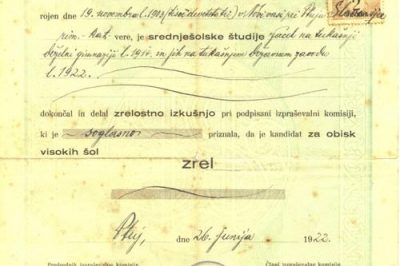 rojen dne 19. novembra l. 1903 v Novi vasi pri Ptuju
rim.-kat. vere, je srednješolske študije začel na tukajšnji
državni gimnaziji l. 1915. in jih na tukajšnjem zavodu
l. 1922.
dokončal in delal zrelostno izkušnjo pri podpisani izpraševalni komisiji,
ki je soglasno priznala, da je kandidat za obisk
visokih šol
zrel
Ptuj, dne 26. junija 1922.
Predsednik izpraševalne komisije Člani izpraševalne komisije